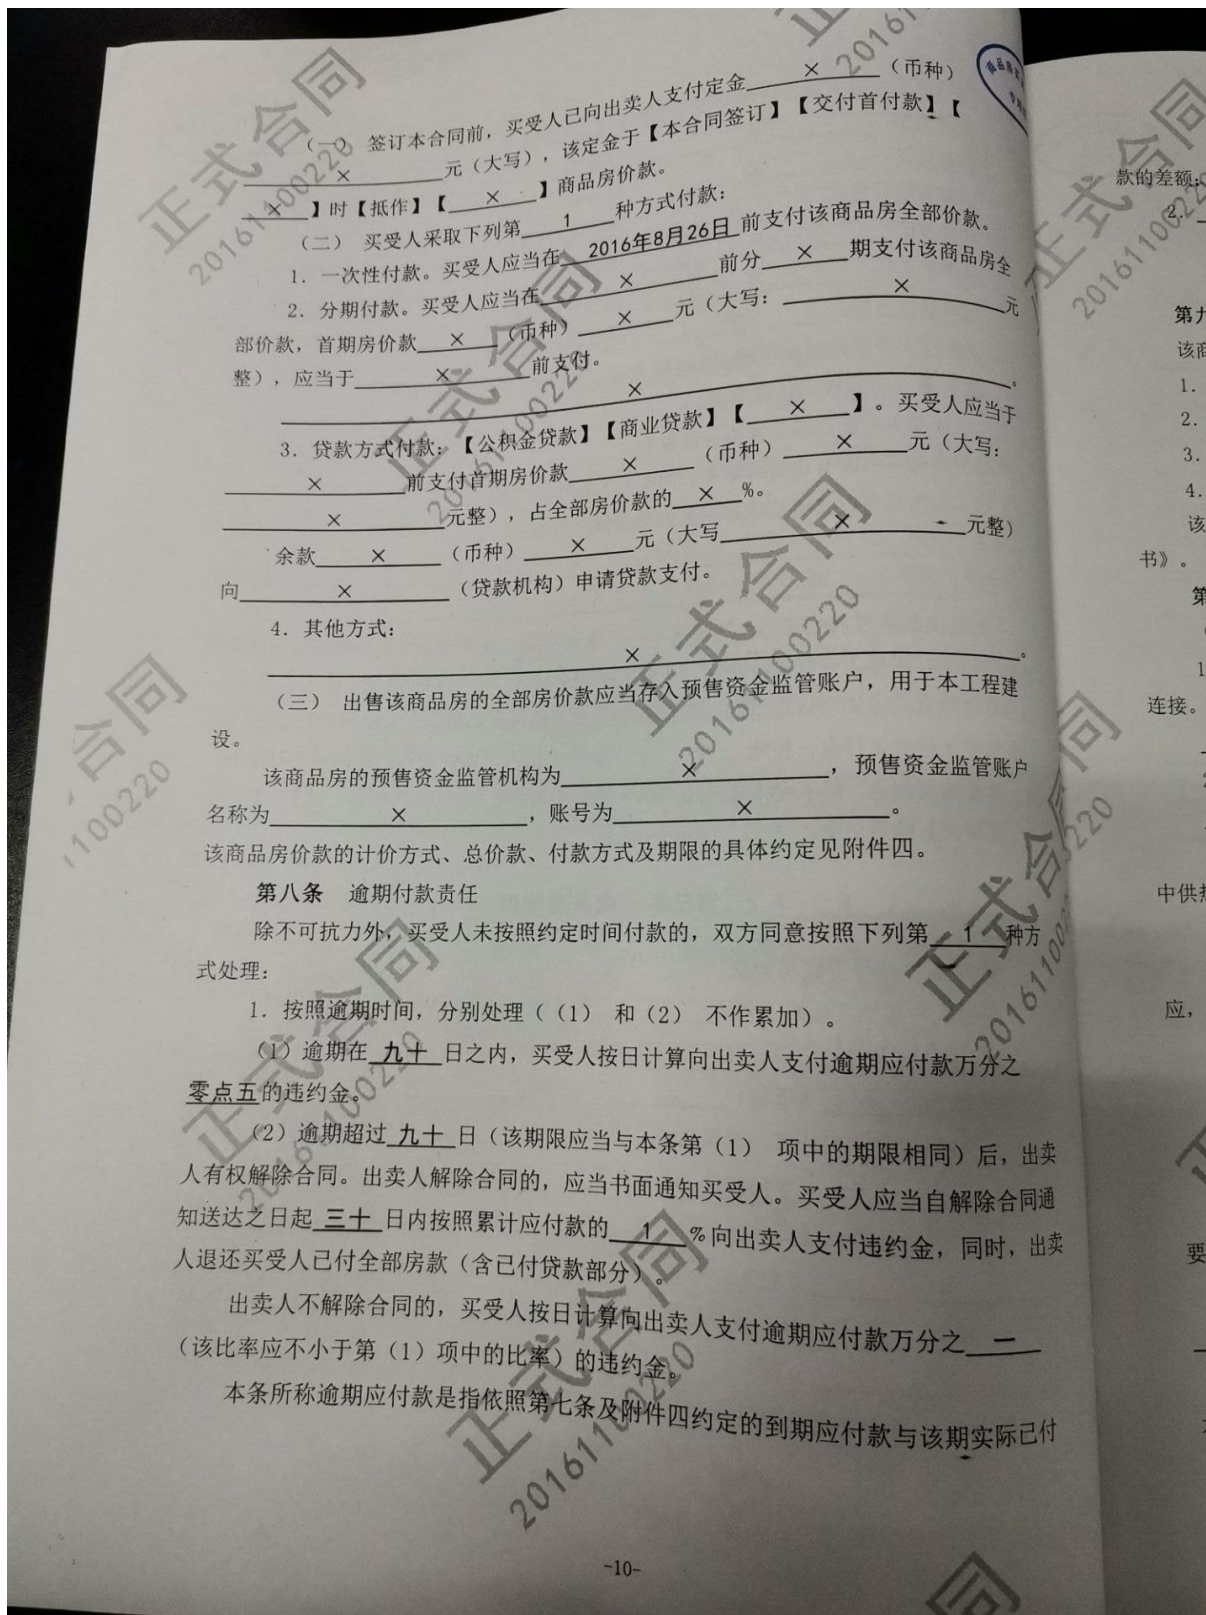 （一） 签订本合同前，买受人已向出卖人支付定金 × （币种）
× 元（大写），该定金于【本合同签订】【交付首付款】【
× 】时【抵作】【 × 】商品房价款。
（二） 买受人采取下列第 1 种方式付款：
1. 一次性付款。买受人应当在 2016年8月26日 前支付该商品房全部价款。
2. 分期付款。买受人应当在 × 前分 × 期支付该商品房全
部价款，首期房价款 × （币种） × 元（大写： × 元
整），应当于 × 前支付。
× 。
3. 贷款方式付款：【公积金贷款】【商业贷款】【 × 】。买受人应当于
× 前支付首期房价款 × （币种） × 元（大写：
× 元整），占全部房价款的 × %。
余款 × （币种） × 元（大写 × 元整）
向 × （贷款机构）申请贷款支付。
4. 其他方式：
× 。
（三） 出售该商品房的全部房价款应当存入预售资金监管账户，用于本工程建
设。
该商品房的预售资金监管机构为 × ，预售资金监管账户
名称为 × ，账号为 × 。
该商品房价款的计价方式、总价款、付款方式及期限的具体约定见附件四。
第八条 逾期付款责任
除不可抗力外，买受人未按照约定时间付款的，双方同意按照下列第 1 种方
式处理：
1. 按照逾期时间，分别处理（（1） 和（2） 不作累加）。
（1）逾期在 九十 日之内，买受人按日计算向出卖人支付逾期应付款万分之
零点五的违约金。
（2）逾期超过 九十 日（该期限应当与本条第（1） 项中的期限相同）后，出卖
人有权解除合同。出卖人解除合同的，应当书面通知买受人。买受人应当自解除合同通
知送达之日起 三十 日内按照累计应付款的 1 %向出卖人支付违约金，同时，出卖
人退还买受人已付全部房款（含已付贷款部分）。
出卖人不解除合同的，买受人按日计算向出卖人支付逾期应付款万分之 一
（该比率应不小于第（1）项中的比率）的违约金。
本条所称逾期应付款是指依照第七条及附件四约定的到期应付款与该期实际已付
-10-
正式合同
201611100220
款的差额；
2.
第九
该商
1.
2.
3.
4.
该
书》。
第
1
连接。
中供热
应，
要